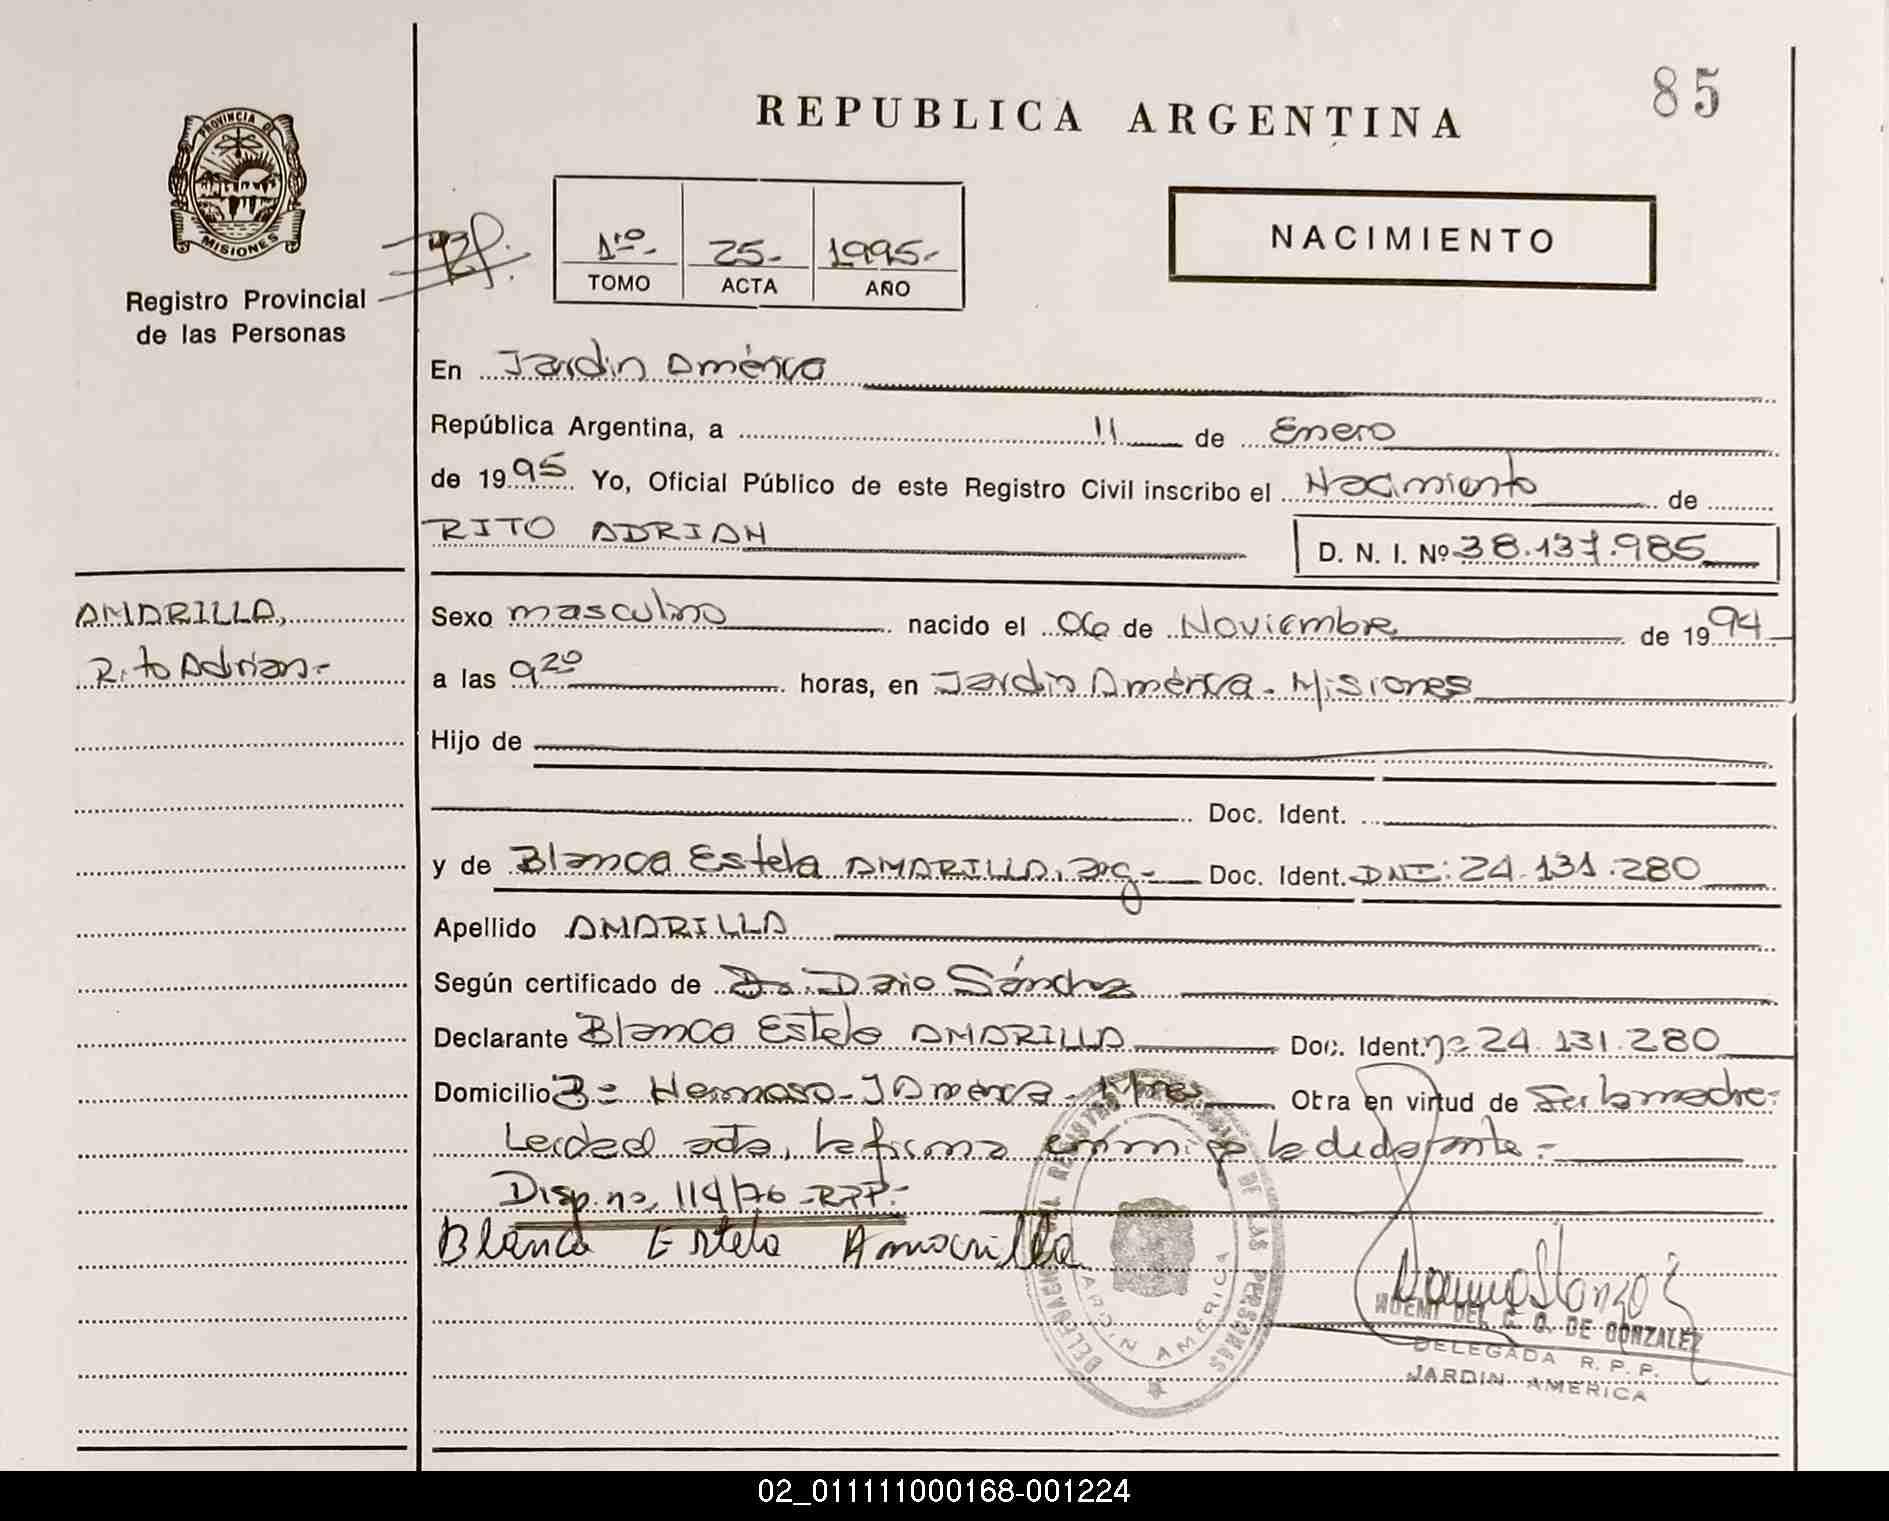 85
REPUBLICA ARGENTINA
PROVINCIA DE
MISIONES
Registro Provincial
de las Personas
1ro.- 25.- 1995.-
TOMO ACTA AÑO
NACIMIENTO
En Jardin América
República Argentina, a 11 de Enero
de 1995 Yo, Oficial Público de este Registro Civil inscribo el Nacimiento de
RITO ADRIAN D. N. I. Nº 38.137.985
AMARILLA,
Rito Adrian.-
Sexo masculino nacido el 06 de Noviembre de 1994
a las 9 20 horas, en Jardin América - Misiones
Hijo de
Doc. Ident.
y de Blanca Estela AMARILLA, arg.- Doc. Ident. DNI: 24.131.280
Apellido AMARILLA
Según certificado de Dr. Dario Sánchez
Declarante Blanca Estela AMARILLA Doc. Ident. nº 24.131.280
Domicilio Bº Hermoso - J América - Mnes Obra en virtud de Ser la madre.
Leida el acta, la firma conmigo la declarante.-
Disp. nº 114/76 - RPP.-
Blanca Estela Amarilla
DELEGACION DEL REGISTRO PROVINCIAL DE LAS PERSONAS
JARDIN AMERICA
NOEMI DEL C. O. DE GONZALEZ
DELEGADA R. P. P.
JARDIN AMERICA
02_011111000168-001224